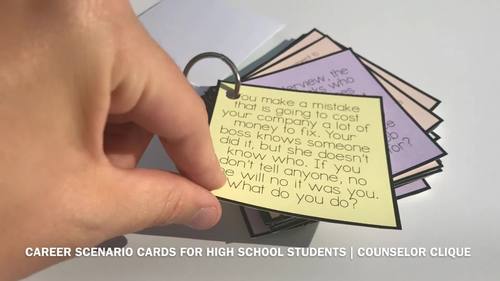 You make a mistake
that is going to cost
your company a lot of
money to fix. Your
boss knows someone
did it, but she doesn't
know who. If you
don't tell anyone, no
e will no it was you.
What do you do?
erview, the
ks who
CAREER SCENARIO CARDS FOR HIGH SCHOOL STUDENTS | COUNSELOR CLIQUE